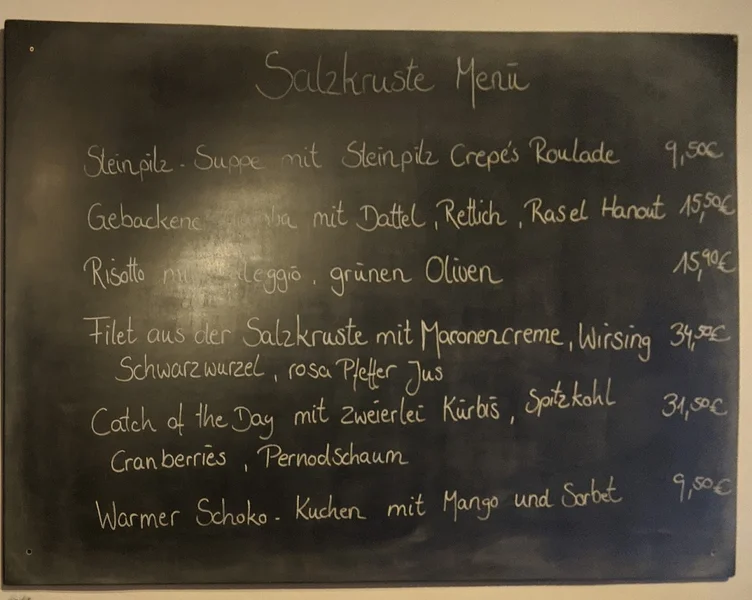 Salzkruste Menü
Steinpilz - Suppe mit Steinpilz Crepés Roulade 9,50€
Gebackene mit Dattel, Rettich, Ras el Hanout 15,50€
Risotto grünen Oliven 15,90€
Filet aus der Salzkruste mit Maronencreme, Wirsing 34,50€
Schwarzwurzel, rosa Pfeffer Jus
Catch of the Day mit zweierlei Kürbis, Spitzkohl 31,50€
Cranberries, Pernodschaum
Warmer Schoko - Kuchen mit Mango und Sorbet 9,50€